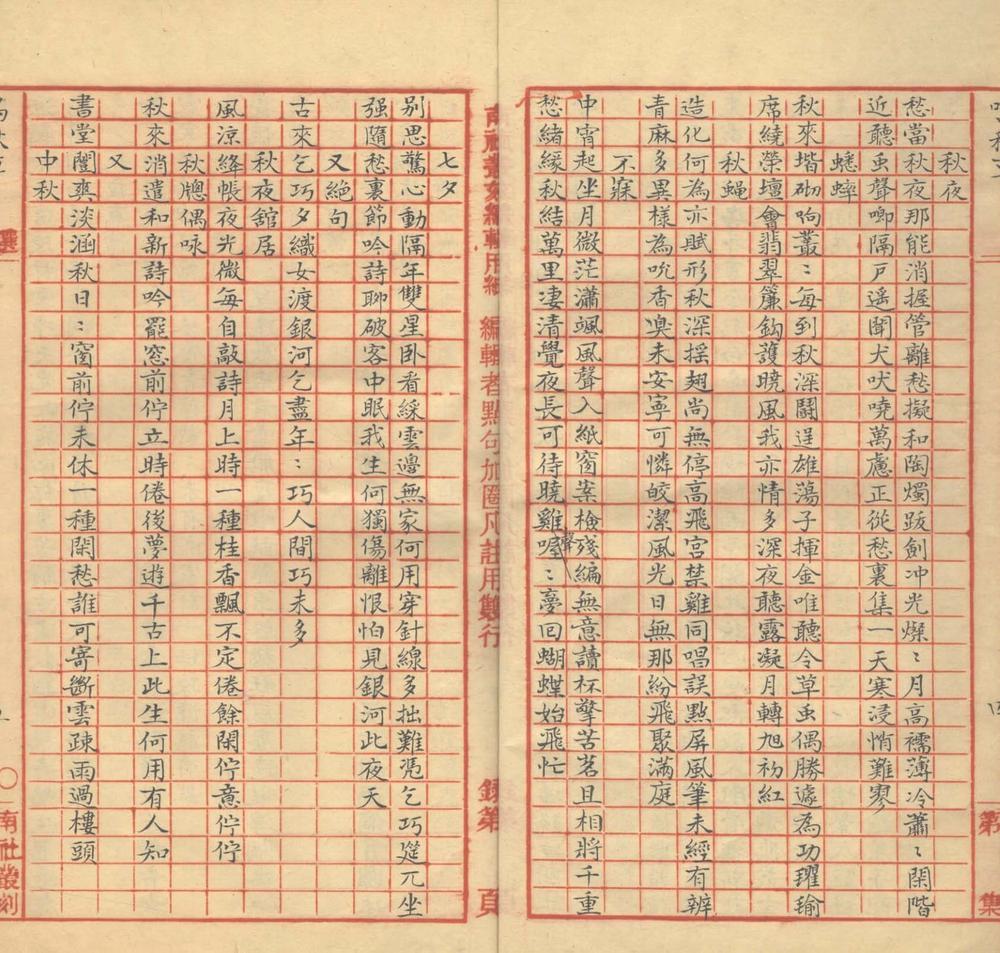 第 集
秋夜
愁當秋夜那能消握管離愁擬和陶燭跋劍冲光燦〻月高襦薄冷蕭〻閑階
近聽虫聲喞隔戸遥聞犬吠嘵萬慮正從愁裏集一天寒浸悄難寥
蟋蟀
秋來堦砌响叢〻每到秋深鬪逞雄蕩子揮金唯聽令草虫偶勝遽為功瓘瑜
席繞榮壇會翡翠簾鈎護曉風我亦情多深夜聽露凝月轉旭初紅
秋蝇
造化何為亦賦形秋深摇翅尚無停高飛宫禁雞同唱誤點屏風筆未經有辨
青麻多異樣為吮香澳未安寧可憐皎潔風光日無那紛飛聚滿庭
不寐
中宵起坐月微茫瀟颯風聲入紙窗案檢殘編無意讀杯擎苦茗且相將千重
愁緒緣秋結萬里凄清覺夜長可待曉雞聲喔〻夢回蝴蝶始飛忙
南社叢刻 編輯者點句加圈凡註用雙行 錄第 頁
七夕
别思驚心動隔年雙星卧看綵雲邊無家何用穿針線多拙難憑乞巧筵兀坐
强隨愁裏節吟詩聊破客中眠我生何獨傷離恨怕見銀河此夜天
又絕句
古來乞巧夕織女渡銀河乞盡年〻巧人間巧未多
秋夜舘居
風凉絳帳夜光微每自敲詩月上時一種桂香飄不定倦餘閑佇意佇佇
秋牕偶咏
秋來消遣和新詩吟罷窓前佇立時倦後夢遊千古上此生何用有人知
又
書堂闓爽淡涵秋日〻窗前佇未休一種閑愁誰可寄斷雲疎雨過樓頭
中秋
選
南社叢刻